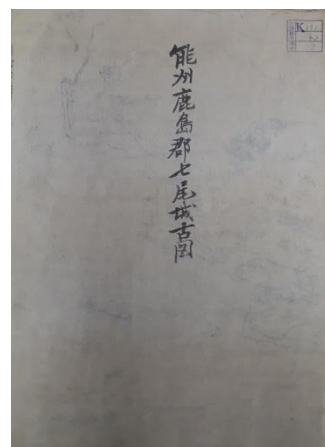 能州鹿島郡七尾城古図
K